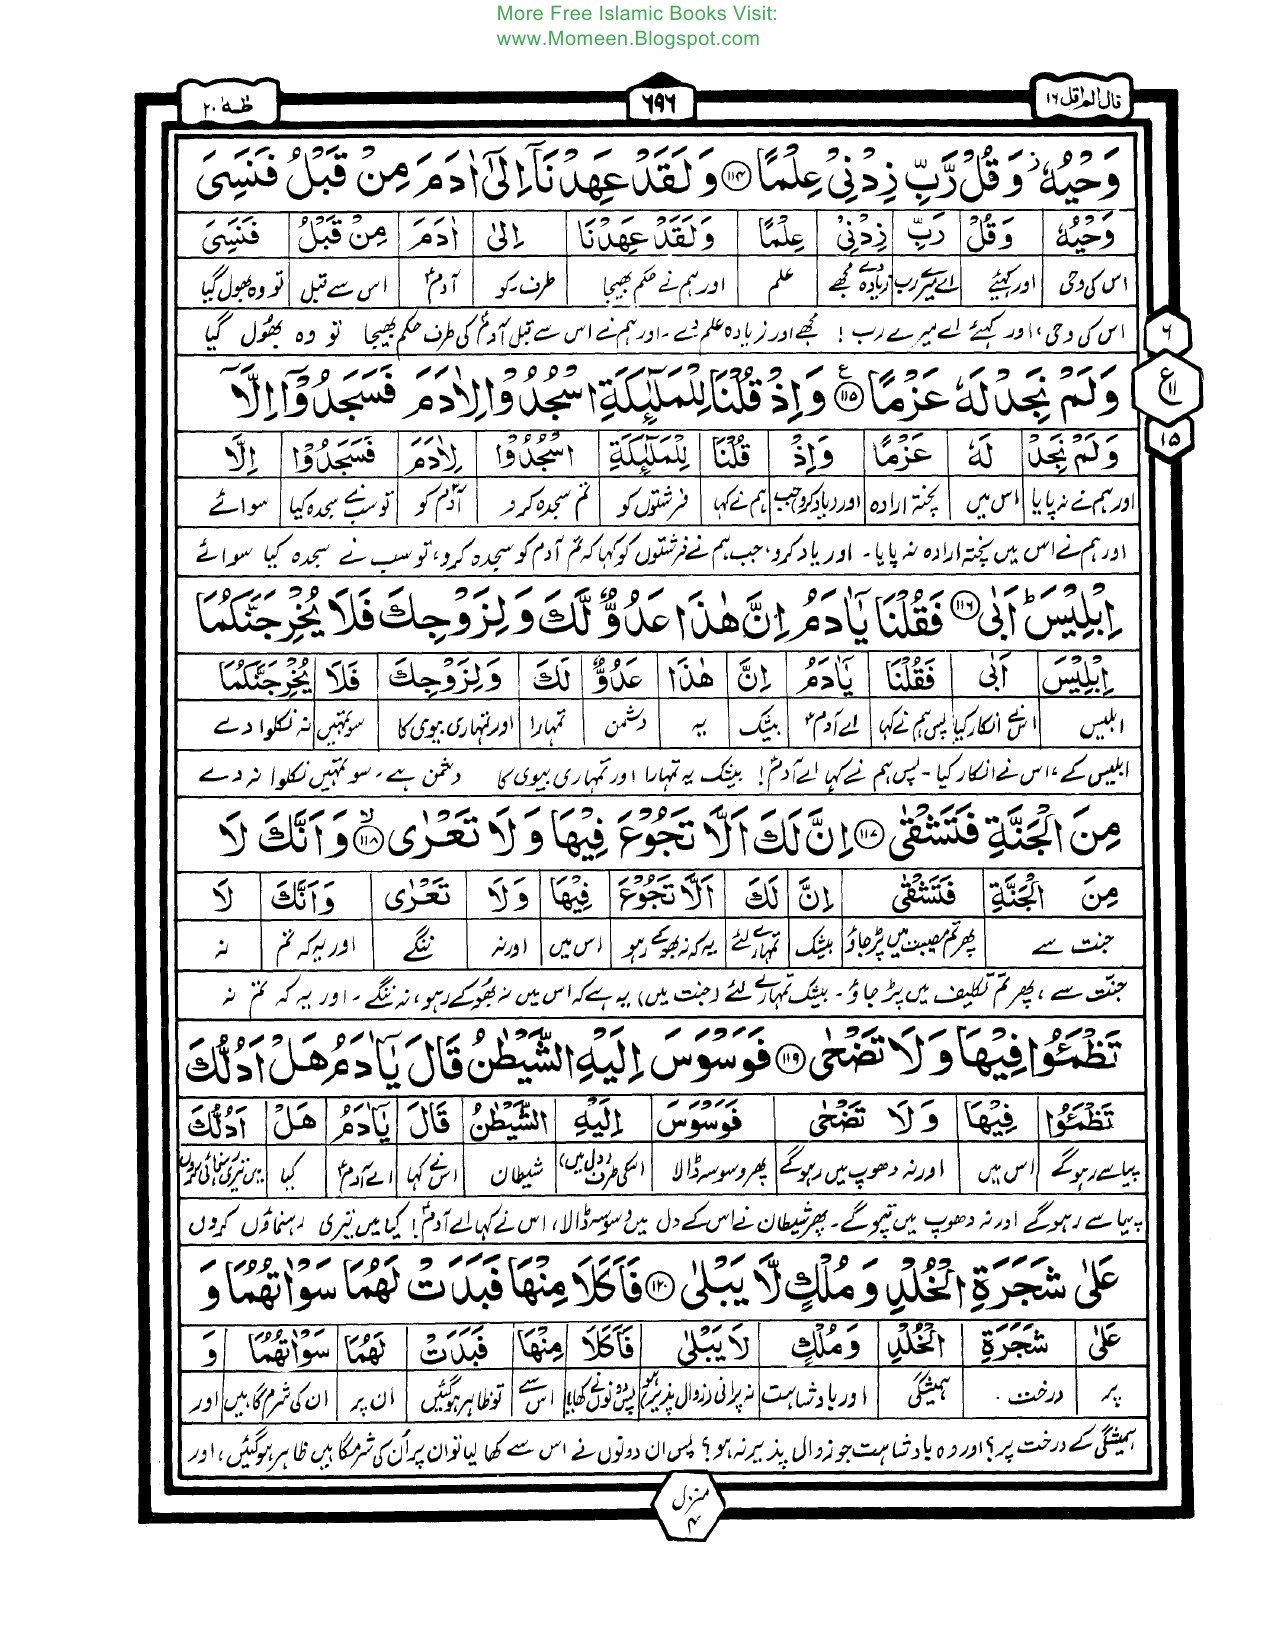 More Free Islamic Books Visit:
www.Momeen.Blogspot.com
قال الم اقل ۱۶
۶۹۶
طٰهٰ ۲۰
وَحْيُهٗ ز وَقُلْ رَّبِّ زِدْنِيْ عِلْمًا ﴿۱۱۴﴾ وَلَقَدْ عَهِدْنَآ اِلٰٓى اٰدَمَ مِنْ قَبْلُ فَنَسِيَ
وَحْيُهٗ وَقُلْ رَبِّ زِدْنِيْ عِلْمًا وَلَقَدْ عَهِدْنَا اِلٰى اٰدَمَ مِنْ قَبْلُ فَنَسِيَ
اس کی وحی اور کہئیے اے میرے رب زیادہ دے مجھے علم اور ہم نے حکم بھیجا طرف۔کو آدمؑ اس سے قبل تو وہ بھول گیا
اس کی وحی، اور کہئے اے میرے رب! مجھے اور زیادہ علم دے۔ اور ہم نے اس سے قبل آدمؑ کی طرف حکم بھیجا تو وہ بھول گیا
۶
ع
۱۱
۱۵
وَلَمْ نَجِدْ لَهٗ عَزْمًا ﴿۱۱۵﴾ ع وَاِذْ قُلْنَا لِلْمَلٰٓئِكَةِ اسْجُدُوْا لِاٰدَمَ فَسَجَدُوْٓا اِلَّآ
وَلَمْ نَجِدْ لَهٗ عَزْمًا وَاِذْ قُلْنَا لِلْمَلٰٓئِكَةِ اسْجُدُوْا لِاٰدَمَ فَسَجَدُوْا اِلَّا
اور ہم نے نہ پایا اس میں پختہ ارادہ اور (یاد کرو) جب ہم نے کہا فرشتوں کو تم سجدہ کرو آدمؑ کو تو سب نے سجدہ کیا سوائے
اور ہم نے اس میں پختہ ارادہ نہ پایا۔ اور یاد کرو، جب ہم نے فرشتوں کو کہا کہ تم آدم کو سجدہ کرو، تو سب نے سجدہ کیا سوائے
اِبْلِيْسَ ط اَبٰى ﴿۱۱۶﴾ فَقُلْنَا يٰٓاٰدَمُ اِنَّ هٰذَا عَدُوٌّ لَّكَ وَلِزَوْجِكَ فَلَا يُخْرِجَنَّكُمَا
اِبْلِيْسَ اَبٰى فَقُلْنَا يٰٓاٰدَمُ اِنَّ هٰذَا عَدُوٌّ لَكَ وَلِزَوْجِكَ فَلَا يُخْرِجَنَّكُمَا
ابلیس اس نے انکار کیا پس ہم نے کہا اے آدمؑ بیشک یہ دشمن تمہارا اور تمہاری بیوی کا سو تمہیں نہ نکلوا دے
ابلیس کے، اس نے انکار کیا۔ پس ہم نے کہا اے آدمؑ! بیشک یہ تمہارا اور تمہاری بیوی کا دشمن ہے۔ سو تمہیں نکلوا نہ دے
مِنَ الْجَنَّةِ فَتَشْقٰى ﴿۱۱۷﴾ اِنَّ لَكَ اَلَّا تَجُوْعَ فِيْهَا وَلَا تَعْرٰى ﴿۱۱۸﴾ لا وَاَنَّكَ لَا
مِنَ الْجَنَّةِ فَتَشْقٰى اِنَّ لَكَ اَلَّا تَجُوْعَ فِيْهَا وَلَا تَعْرٰى وَاَنَّكَ لَا
جنت سے پھر تم مصیبت میں پڑ جاؤ بیشک تمہارے لئے یہ کہ نہ بھوکے رہو اس میں اور نہ ننگے اور یہ کہ تم نہ
جنّت سے، پھر تم تکلیف میں پڑ جاؤ۔ بیشک تمہارے لئے (جنت میں) یہ ہے کہ اس میں نہ بھوکے رہو، نہ ننگے۔ اور یہ کہ تم نہ
تَظْمَؤُا فِيْهَا وَلَا تَضْحٰى ﴿۱۱۹﴾ فَوَسْوَسَ اِلَيْهِ الشَّيْطٰنُ قَالَ يٰٓاٰدَمُ هَلْ اَدُلُّكَ
تَظْمَؤُا فِيْهَا وَلَا تَضْحٰى فَوَسْوَسَ اِلَيْهِ الشَّيْطٰنُ قَالَ يٰٓاٰدَمُ هَلْ اَدُلُّكَ
پیاسے رہو گے اس میں اور نہ دھوپ میں رہو گے پھر وسوسہ ڈالا اسکی طرف (دل میں) شیطان اس نے کہا اے آدمؑ کیا میں تیری رہنمائی کروں
پیاسے رہو گے اور نہ دھوپ میں تپو گے۔ پھر شیطان نے اس کے دل میں وسوسہ ڈالا، اس نے کہا اے آدمؑ! کیا میں تیری رہنماؤں کروں
عَلٰى شَجَرَةِ الْخُلْدِ وَمُلْكٍ لَّا يَبْلٰى ﴿۱۲۰﴾ فَاَكَلَا مِنْهَا فَبَدَتْ لَهُمَا سَوْاٰتُهُمَا وَ
عَلٰى شَجَرَةِ الْخُلْدِ وَمُلْكٍ لَا يَبْلٰى فَاَكَلَا مِنْهَا فَبَدَتْ لَهُمَا سَوْاٰتُهُمَا وَ
پر درخت ہمیشگی اور بادشاہت نہ پرانی (زوال پذیر) ہو پس دونوں نے کھایا اس سے تو ظاہر ہو گئیں ان پر ان کی شرم گاہیں اور
ہمیشگی کے درخت پر؟ اور وہ بادشاہت جو زوال پذیر نہ ہو؟ پس ان دونوں نے اس سے کھا لیا تو ان پر اُن کی شرمگاہیں ظاہر ہو گئیں، اور
منزل
۴